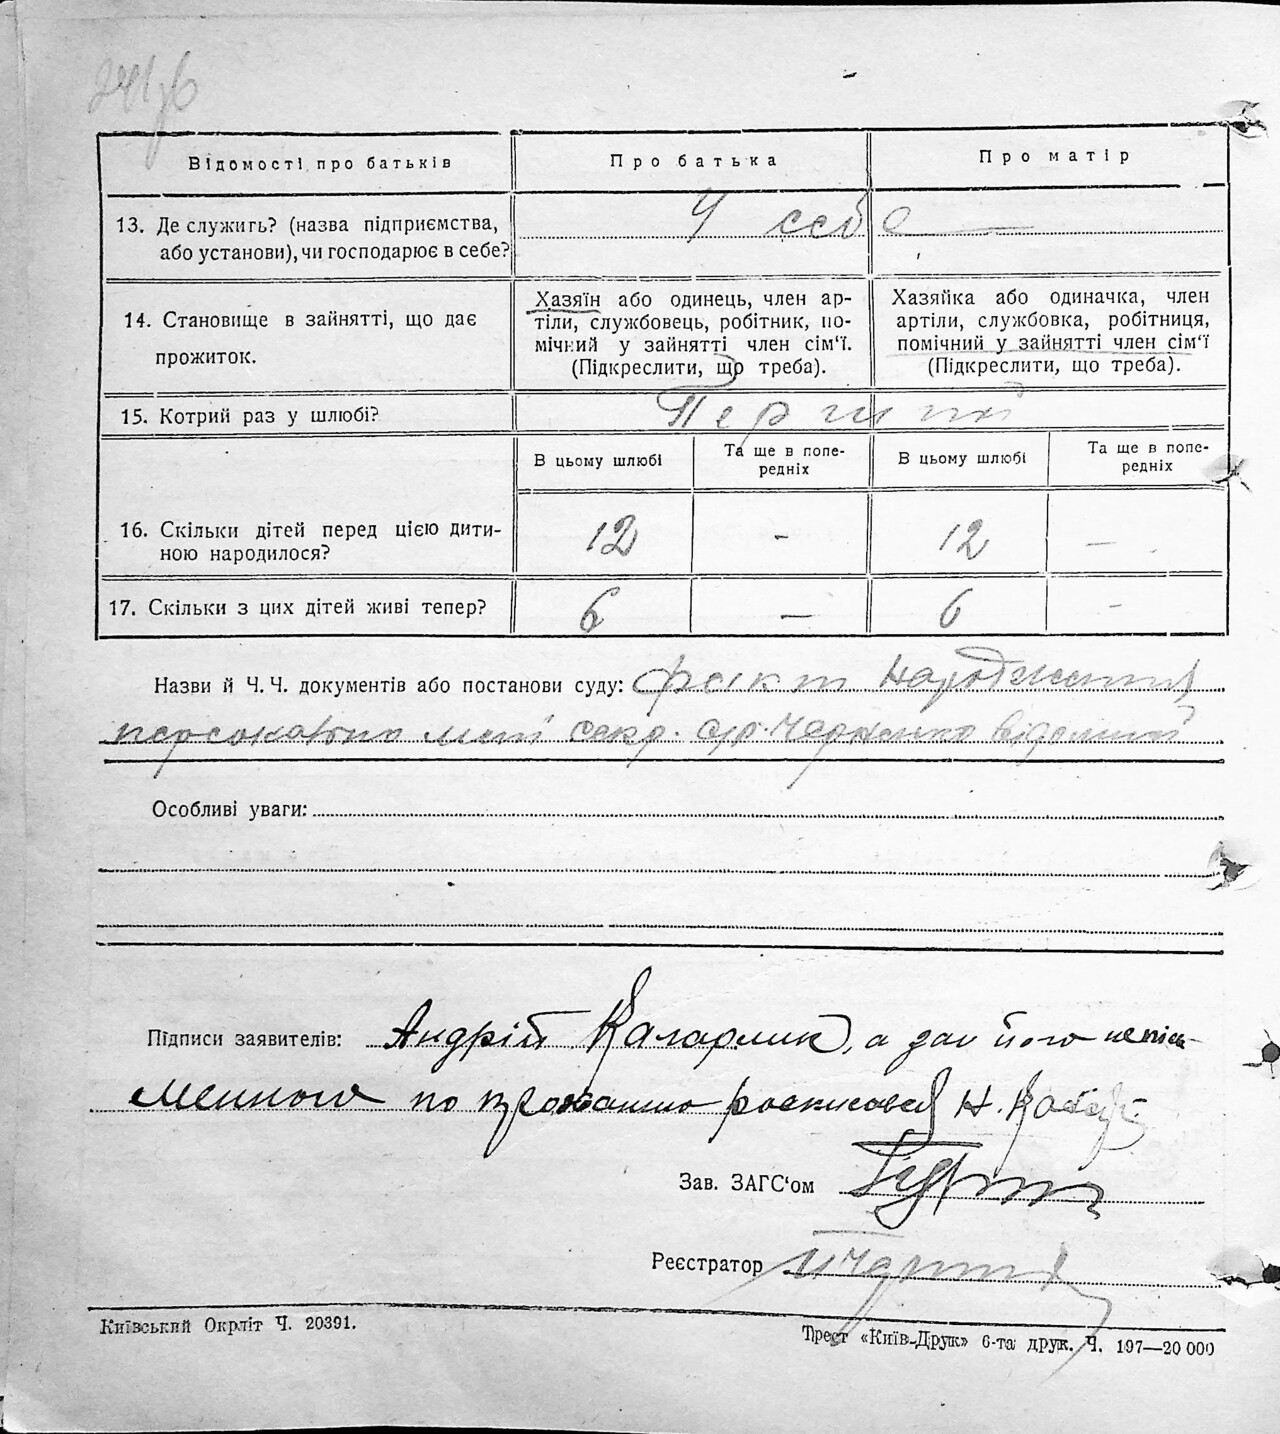 Відомості про батьків
Про батька
Про матір
13. Де служить? (назва підприємства, або установи), чи господарює в себе?
У себе
14. Становище в зайнятті, що дає прожиток.
Хазяїн або одинець, член ар-
тіли, службовець, робітник, по-
мічний у зайнятті член сім'ї.
(Підкреслити, що треба).
Хазяйка або одиначка, член
артіли, службовка, робітниця,
помічний у зайнятті член сім'ї
(Підкреслити, що треба).
15. Котрий раз у шлюбі?
Перший
В цьому шлюбі
Та ще в попе-
редніх
В цьому шлюбі
Та ще в попе-
редніх
16. Скільки дітей перед цією дити-
ною народилося?
12 - 12 -
17. Скільки з цих дітей живі тепер?
6 - 6 -
Назви й Ч. Ч. документів або постанови суду: факт народження
персонально мені секр. с/р. Черненко відомий
Особливі уваги:
Підписи заявителів: Андрій Кагарлик, а за його непись
менного по проханню росписовся Н.
Зав. ЗАГС'ом
Реєстратор
Київський Окрліт Ч. 20391.
Трест «Київ-Друк» 6-та друк. Ч. 197—20 000